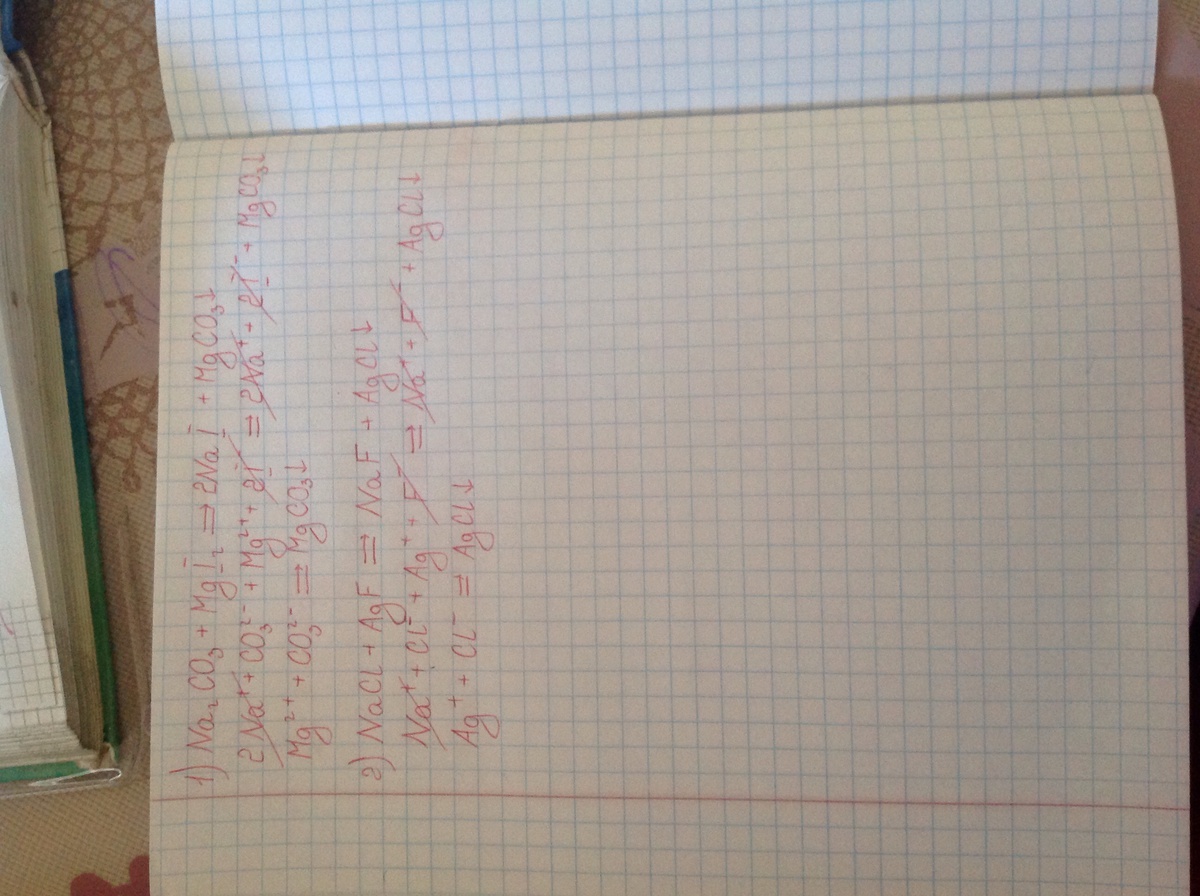 1) Na₂CO₃ + MgI₂ = 2NaI + MgCO₃↓
2Na⁺ + CO₃²⁻ + Mg²⁺ + 2I⁻ = 2Na⁺ + 2I⁻ + MgCO₃↓
Mg²⁺ + CO₃²⁻ = MgCO₃↓
2) NaCl + AgF = NaF + AgCl↓
Na⁺ + Cl⁻ + Ag⁺ + F⁻ = Na⁺ + F⁻ + AgCl↓
Ag⁺ + Cl⁻ = AgCl↓